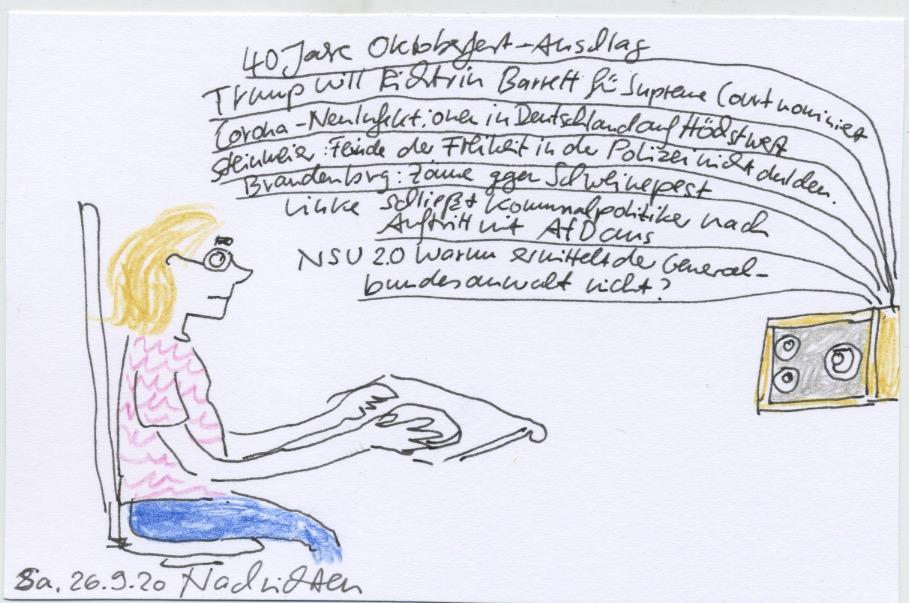 40 Jare Oktoberfest-Anschlag
Trump will Richtrin Barrett für Supreme Court nominiert
Corona-Neuinfektionen in Deutschland auf Höchstwert
Steinmeier: Feinde der Freiheit in der Polizei nicht dulden.
Brandenburg: Zäune ggen Schweinepest
Linke schließt Kommunalpolitiker nach
Auftritt mit AfD aus
NSU 2.0 warum ermittelt der General-
bundesanwalt nicht?
Sa. 26.9.20 Nachrichten